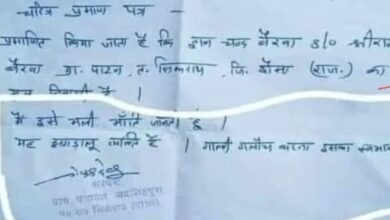 - चरित्र प्रमाण पत्र -
प्रमाणित किया जाता है कि ज्ञान चन्द बैरवा S/O श्रीराम
बैरवा ग्रा. पाटन, त. सिकराय, जि. दौसा (राज.) का
निवासी है ।
मैं इसे भली भाँति जानता हूँ ।
यह झगड़ालू व्यक्ति है । गाली गलौच करना इसका स्वभाव
सरपंच
ग्राम पंचायत
पं. स. सिकराय (दौसा)